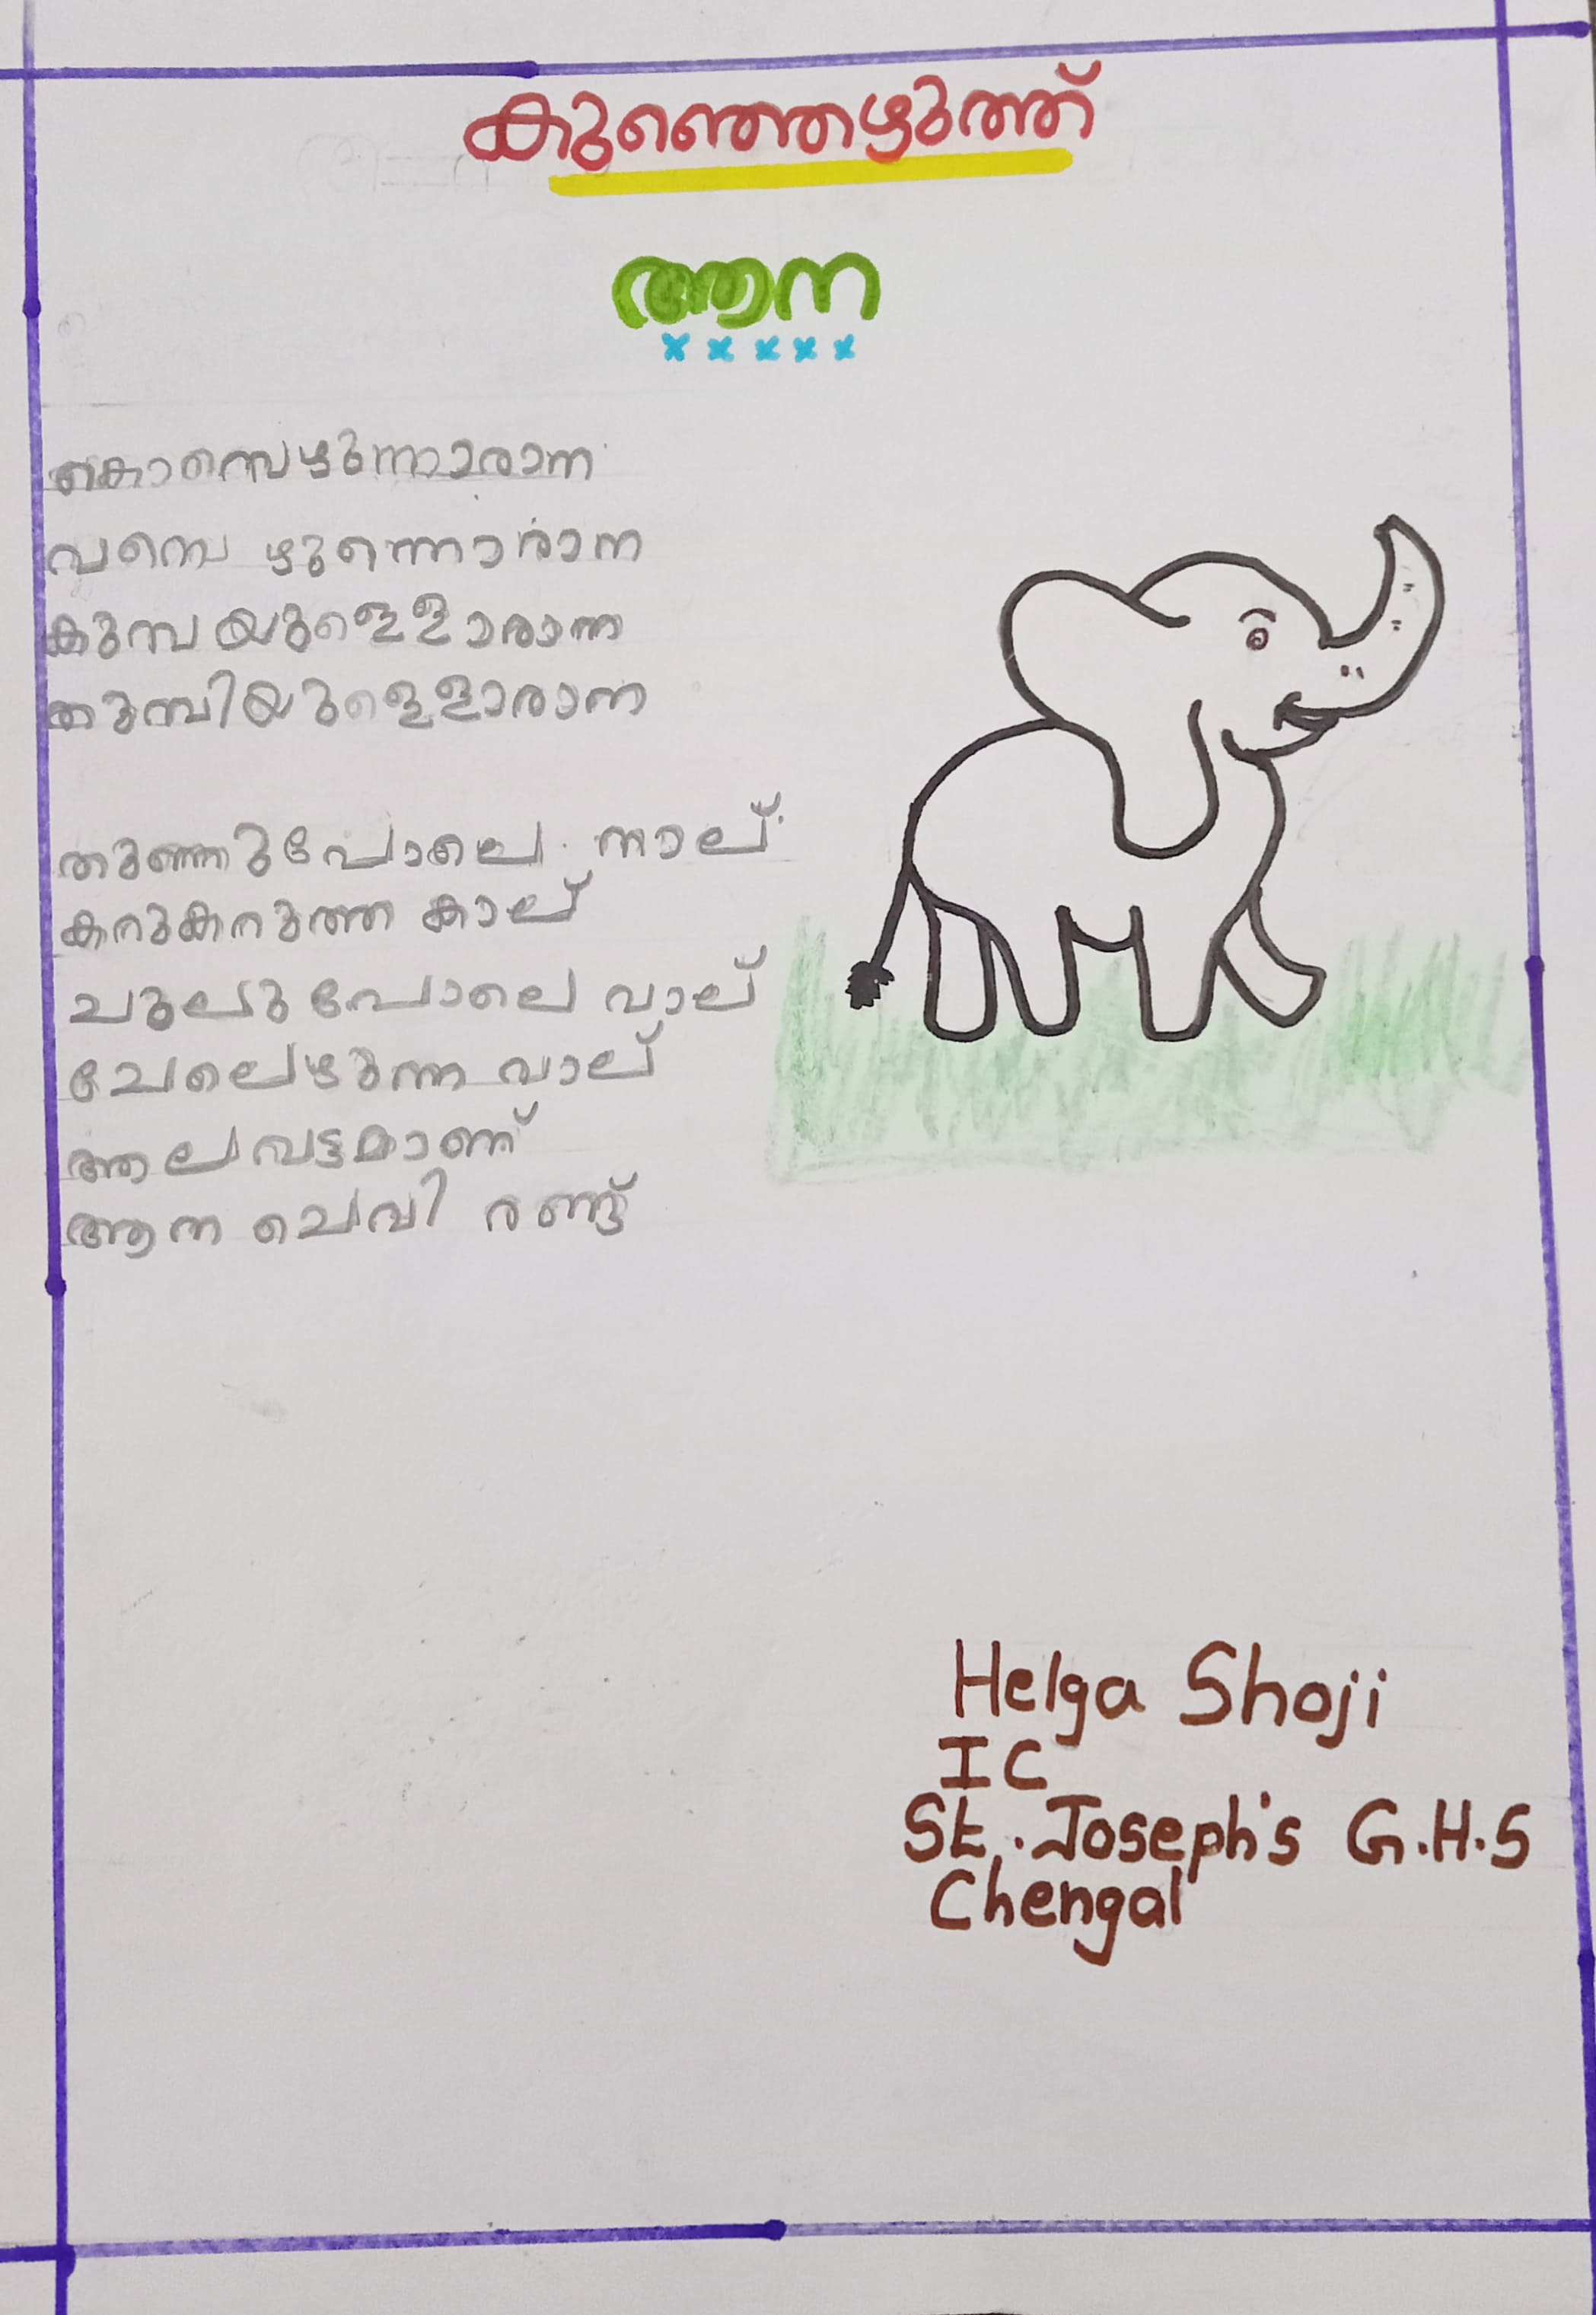 കുഞ്ഞെഴുത്ത്
ആന
കൊമ്പെഴുന്നാരാന
വമ്പെ ഴുന്നൊരാന
കുമ്പയുള്ളൊരാന
തുമ്പിയുള്ളൊരാന
തൂണുപോലെ നാല്
കറുകറുത്ത കാല്
ചൂലു പോലെ വാല്
ചേലെഴുന്ന വാല്
ആലവട്ടമാണ്
ആന ചെവി രണ്ട്
Helga Shoji
I C
St. Joseph's G.H.S
Chengal